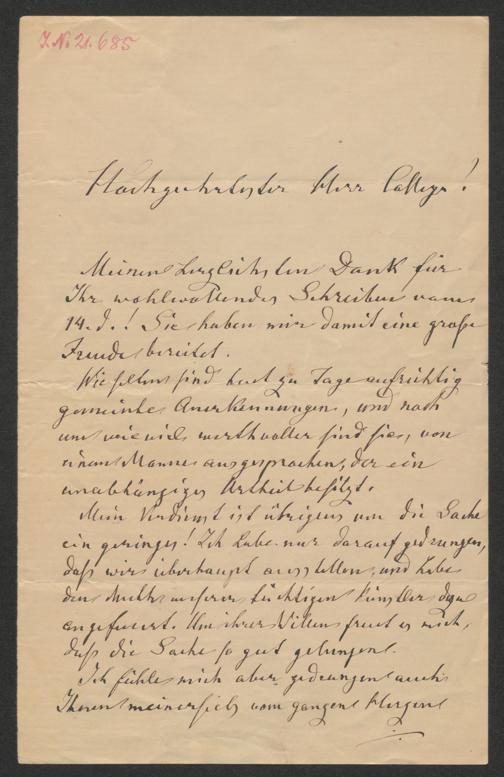 J. N. 21.685
Hochgeehrtester Herr College!
Meinen herzlichsten Dank für
Ihr wohlwollendes Schreiben vom
14. d.! Sie haben mir damit eine große
Freude bereitet.
Wie selten sind heut zu Tage aufrichtig
gemeinte Anerkennungen, und noch
um wie viel werthvoller sind sie, von
einem Manne ausgesprochen, der ein
unabhängiges Urtheil besitzt.
Mein Verdienst ist übrigens um die Sache
ein geringes! Ich habe nur darauf gedrungen,
daß wir überhaupt ausstellen, und habe
den Muth unserer tüchtigen Künstler dazu
angefeuert. Um ihrer Willen freut es mich,
daß die Sache so gut gelungen.
Ich fühle mich aber gedrungen auch
Ihnen meinerseits vom ganzen Herzen